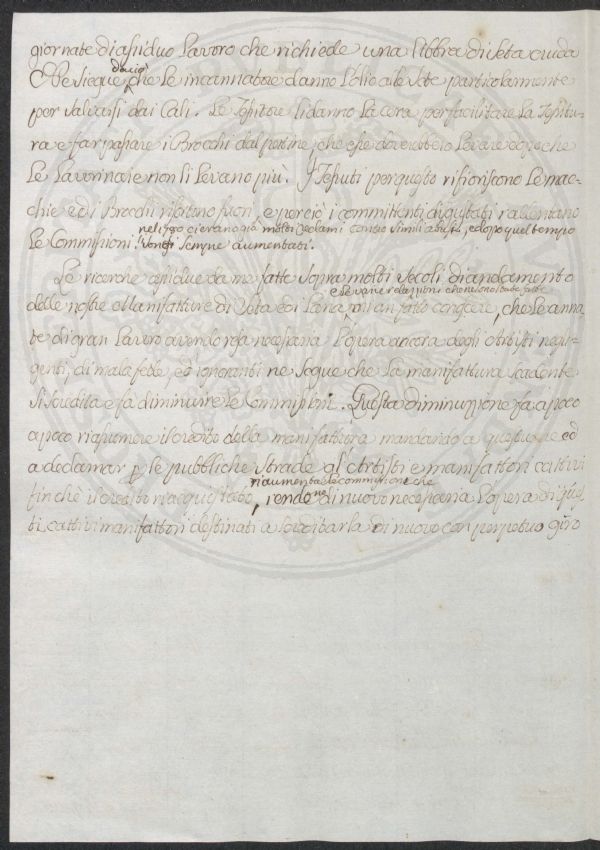 giornate di assiduo lavoro che richiede una libbra di seta cruda
Che siegue da ciò, che le incannatore danno l'olio alle sete particolarmente
per salvarsi dai Cali. Le Tessitore li danno la cera per facilitare la Tessitu-
ra e far passare i Brocchi dal pettine, che esse dovrebbero levare dopo che
le Lavorinaie non li levano più. I Tessuti per questo rifioriscono le mac-
chie ed i Brocchi risortino fuori e perciò i committenti disgustati rallentano
nel 1790 ci erano già molti reclami contro simili abusi, e dopo quel tempo
le Commissioni. Sonosi sempre aumentati.
Le ricerche assidue da me fatte sopra molti secoli di andamento
e le varie relazioni che ne sono state fatte
delle nostre Manifatture di Seta e di Lana, mi an fatto conoscere, che le anna-
te di gran lavoro avendo resa necessaria l'opera ancora degli Artisti negli-
genti, di mala fede, ed ignoranti ne segue che la manifattura scadente
si scredita e fa diminuire le Commissioni. Questa diminuzione fa a poco
a poco riassumere il credito della manifattura mandando a questuare ed
a declamar p le pubbliche strade gl'Artisti e manifattori cattivi
riaumentate le commissioni che
finchè il credito riacquistato, rendono di nuovo necessaria l'opera di ques-
ti cattivi manifattori destinati a screditarla di nuovo con perpetuo giro